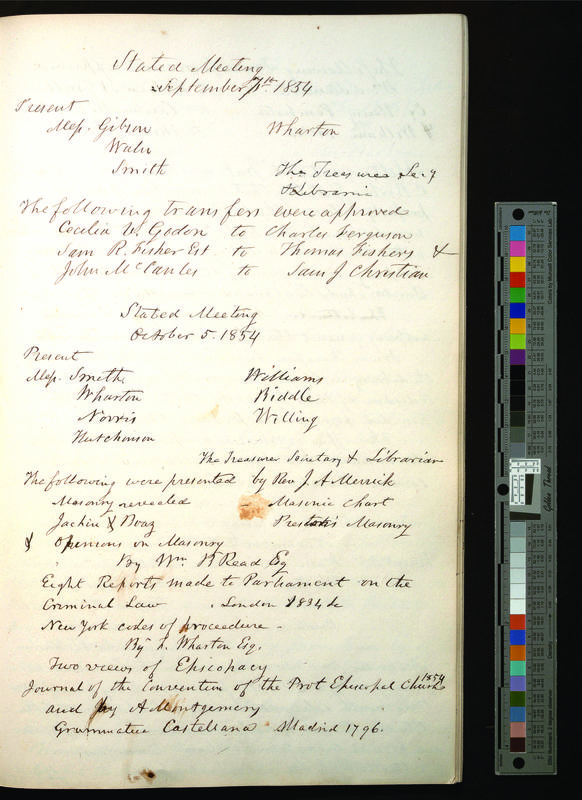 Stated Meeting
September 7th 1854
Present
Mess. Gibson Wharton
Waln
Smith The Treasurer Secy
& Librarin
The following transfers were approved
Cecilia W. Godon to Charles Ferguson
Sam R. Fisher Est to Thomas Fishers &
John McCanles to Sam J Christian
Stated Meeting
October 5. 1854
Present
Mess. Smith Williams
Wharton Biddle
Norris Willing
Hutchinson
The Treasurer Secretary & Librarian
The following were presented by Rev J. A Merrick
Masonry revealed - Masonic Chart
Jachin & Boaz Preston's Masonry
& Opinions on Masonry
By Wm B Read Esq
Eight Reports made to Parliament on the
Criminal Law . London 1834 &c
New York codes of proceedure -
By L. Wharton Esq.
Two views of Episcopacy
Journal of the Convention of the Prot Episcopal Church 1854
and by A Montgomery
Grammatica Castellana Madrid 1796.